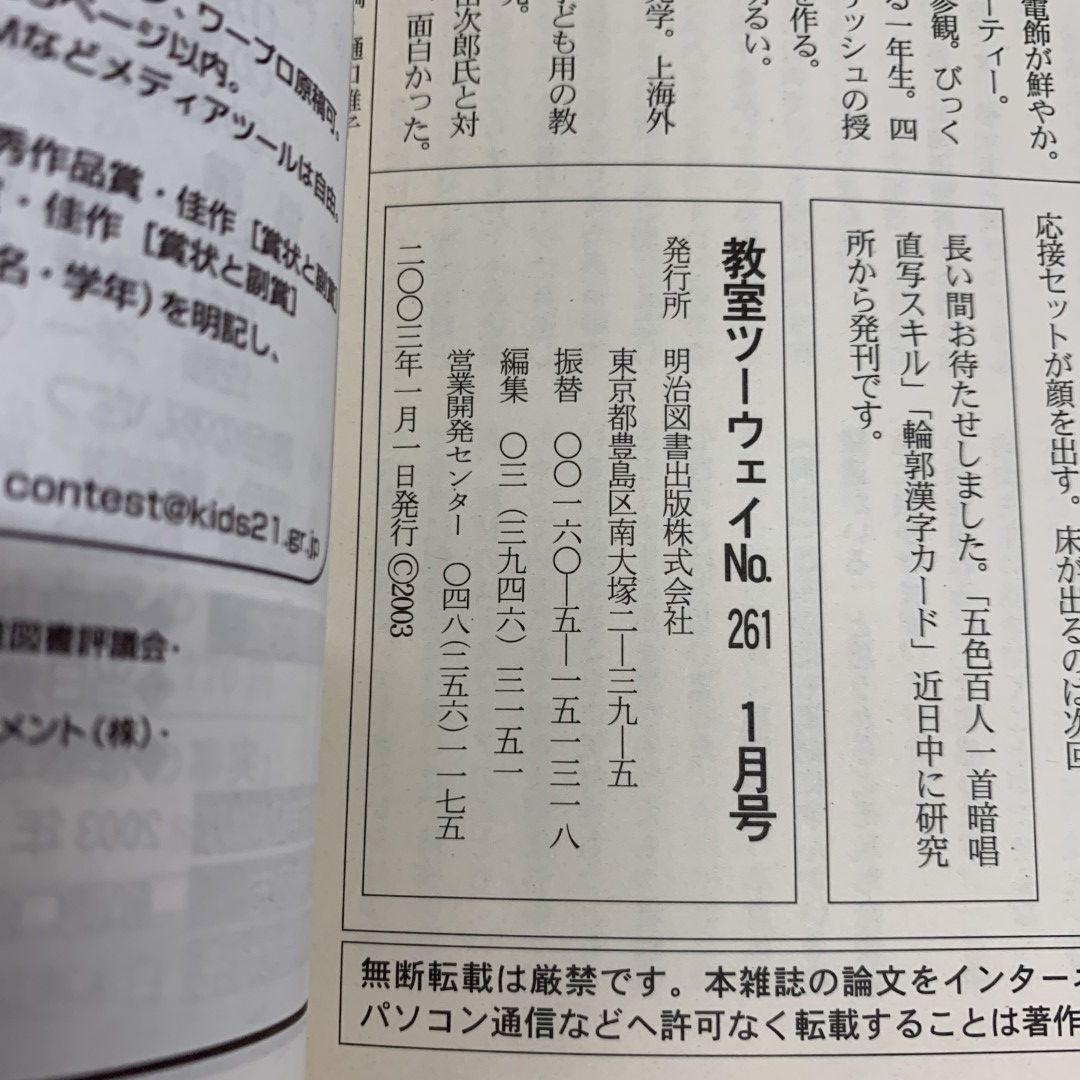 電飾が鮮やか。
ーティー。
参観。びっく
る一年生。四
リッシュの授
を作る。
明るい。
見学。上海外
子ども用の教
田次郎氏と対
面白かった。
応接セットが顔を出す。床が出るのは次回
長い間お待たせしました。「五色百人一首暗唱
直写スキル」「輪郭漢字カード」近日中に研究
所から発刊です。
教室ツーウェイNo. 261 1月号
発行所 明治図書出版株式会社
東京都豊島区南大塚二―三九―五
振替 〇〇一六〇―五―一五一三一八
編集 〇三(三九四六)三一五一
営業開発センター 〇四八(二五六)一一七五
二〇〇三年一月一日発行©2003
無断転載は厳禁です。本雑誌の論文をインターネ
パソコン通信などへ許可なく転載することは著作
ワープロ原稿可。
ページ以内。
Mなどメディアツールは自由。
秀作品賞・佳作[賞状と副賞]
・佳作[賞状と副賞]
名・学年)を明記し、
contest@kids21.gr.jp
図書評議会・
メント(株)・